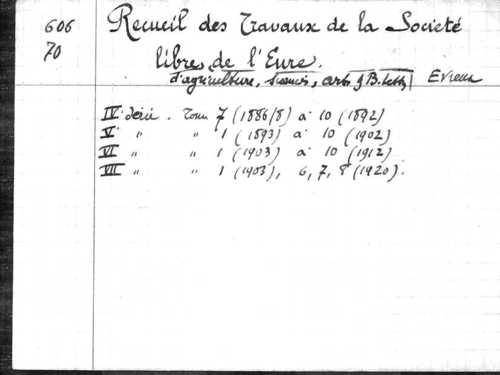 606
70
Recueil des Travaux de la Societé
libre de l'Eure.
d'agriculture, sciences, arts & B. lettres Evreux
IV série. Tome 7 (1886/8) à 10 (1892)
V " " 1 (1893) à 10 (1902)
VI " " 1 (1903) à 10 (1912)
VII " " 1 (1903), 6, 7, 8 (1920).